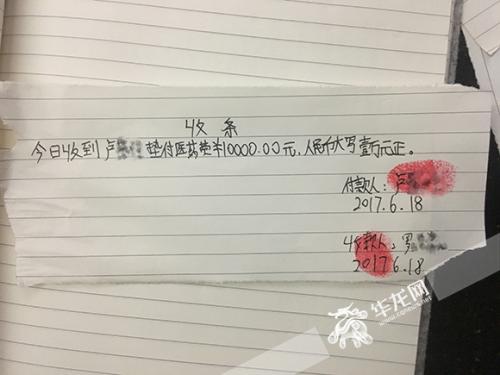 收条
今日收到卢 垫付医药费¥10000.00元，人民币大写壹万元正。
付款人：卢
2017.6.18
收款人：罗
2017.6.18
华龙网
www.cqnews.net